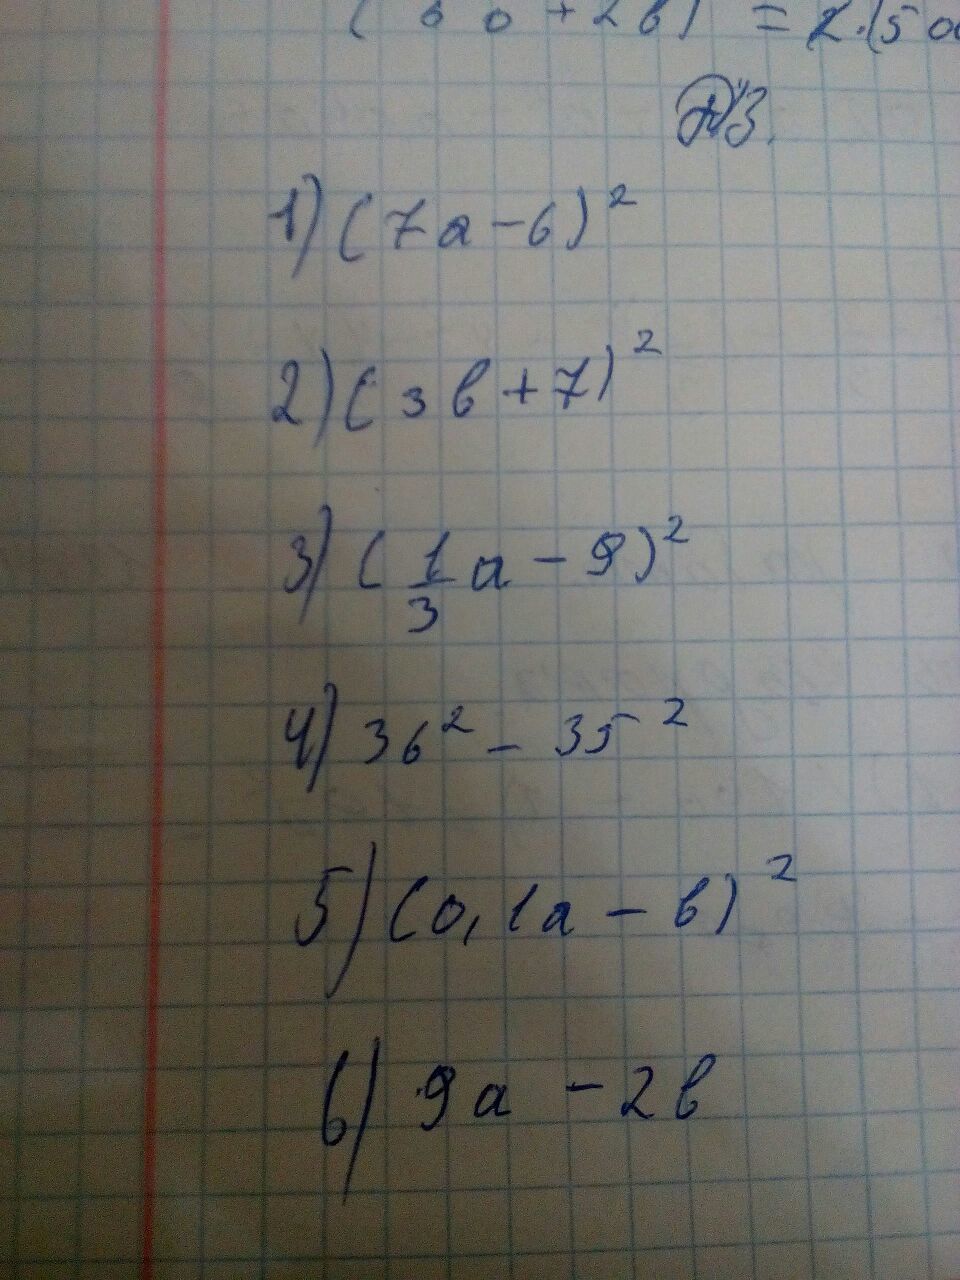 + 2в) = 2·(5a
ДЗ.
1) (7a - 6)²
2) (3в + 7)²
3) (1/3 a - 9)²
4) 36² - 35²
5) (0,1a - в)²
6) 9a - 2в